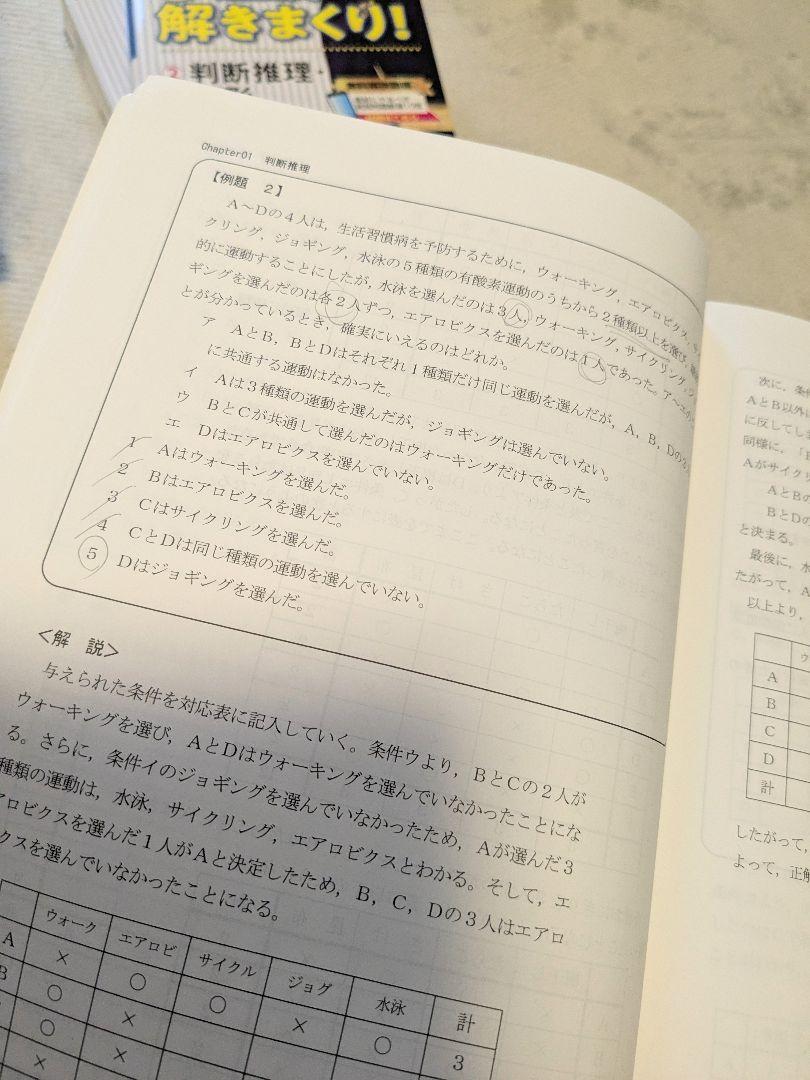 解きまくり!
② 判断推理・
Chapter01 判断推理
【例題 2】
A〜Dの4人は，生活習慣病を予防するために，ウォーキング，エアロビクス，
クリング，ジョギング，水泳の5種類の有酸素運動のうちから2種類以上を選び，
的に運動することにしたが，水泳を選んだのは3人，ウォーキング，サイクリング，
ギングを選んだのは各2人ずつ，エアロビクスを選んだのは1人であった。ア〜エの
とが分かっているとき，確実にいえるのはどれか。
ア AとB，BとDはそれぞれ1種類だけ同じ運動を選んだが，A，B，Dの
に共通する運動はなかった。
イ Aは3種類の運動を選んだが，ジョギングは選んでいない。
ウ BとCが共通して選んだのはウォーキングだけであった。
エ Dはエアロビクスを選んでいない。
1 Aはウォーキングを選んだ。
2 Bはエアロビクスを選んだ。
3 Cはサイクリングを選んだ。
4 CとDは同じ種類の運動を選んでいない。
5 Dはジョギングを選んだ。
<解 説>
与えられた条件を対応表に記入していく。条件ウより，BとCの2人が
ウォーキングを選び，AとDはウォーキングを選んでいなかったことにな
る。さらに，条件イのジョギングを選んでいなかったため，Aが選んだ3
種類の運動は，水泳，サイクリング，エアロビクスとわかる。そして，エ
アロビクスを選んだ1人がAと決定したため，B，C，Dの3人はエアロ
クスを選んでいなかったことになる。
ウォーク エアロビ サイクル ジョグ 水泳 計
A × ○ ○ × ○ 3
B ○ ×
○ ×
× ×
次に，条件
AとB以外に
に反してしま
同様に，「B
Aがサイクリ
AとBの
BとDの
と決まる。
最後に，水
たがって，A
以上より，
ウ
A
B
C
D
計
したがって，
よって，正解